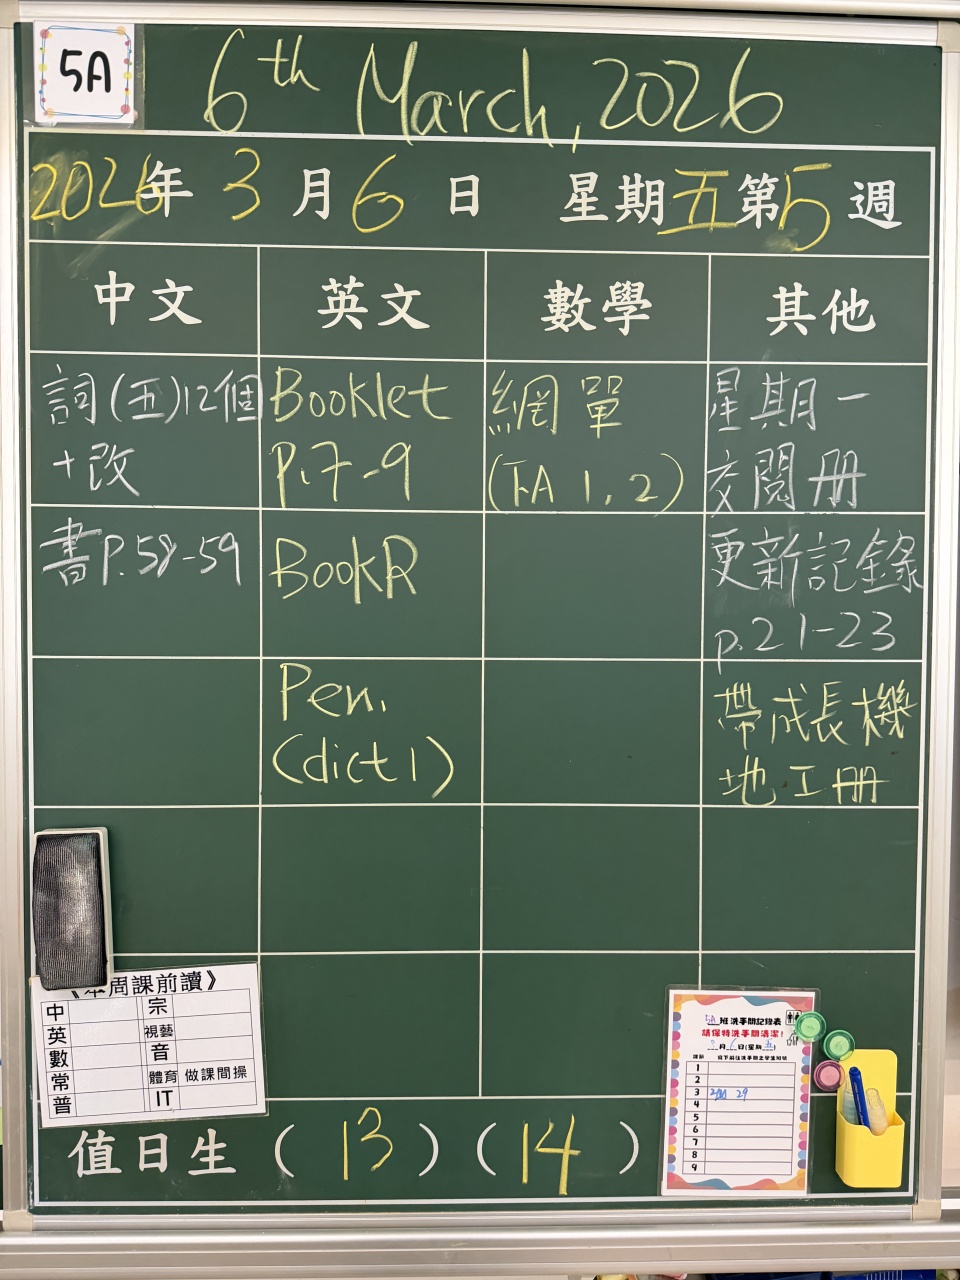 5A
6th March, 2026
2026年 3月6日 星期五第5週
中文 英文 數學 其他
詞(五)12個
+改
Booklet
P.7-9
網單
(FA 1, 2)
星期一
交閱冊
書P.58-59
BookR
更新記錄
p.21-23
Pen.
(dict 1)
帶成長機
地工冊
本周課前讀》
中 宗
英 視藝
數 音
常 體育 做課間操
普 IT
5A班洗手間記錄表
請保持洗手間清潔!
3月6日(星期五)
課節 寫下前往洗手間之學生班號
1
2
3 29
4
5
6
7
8
9
值日生 (13)(14)